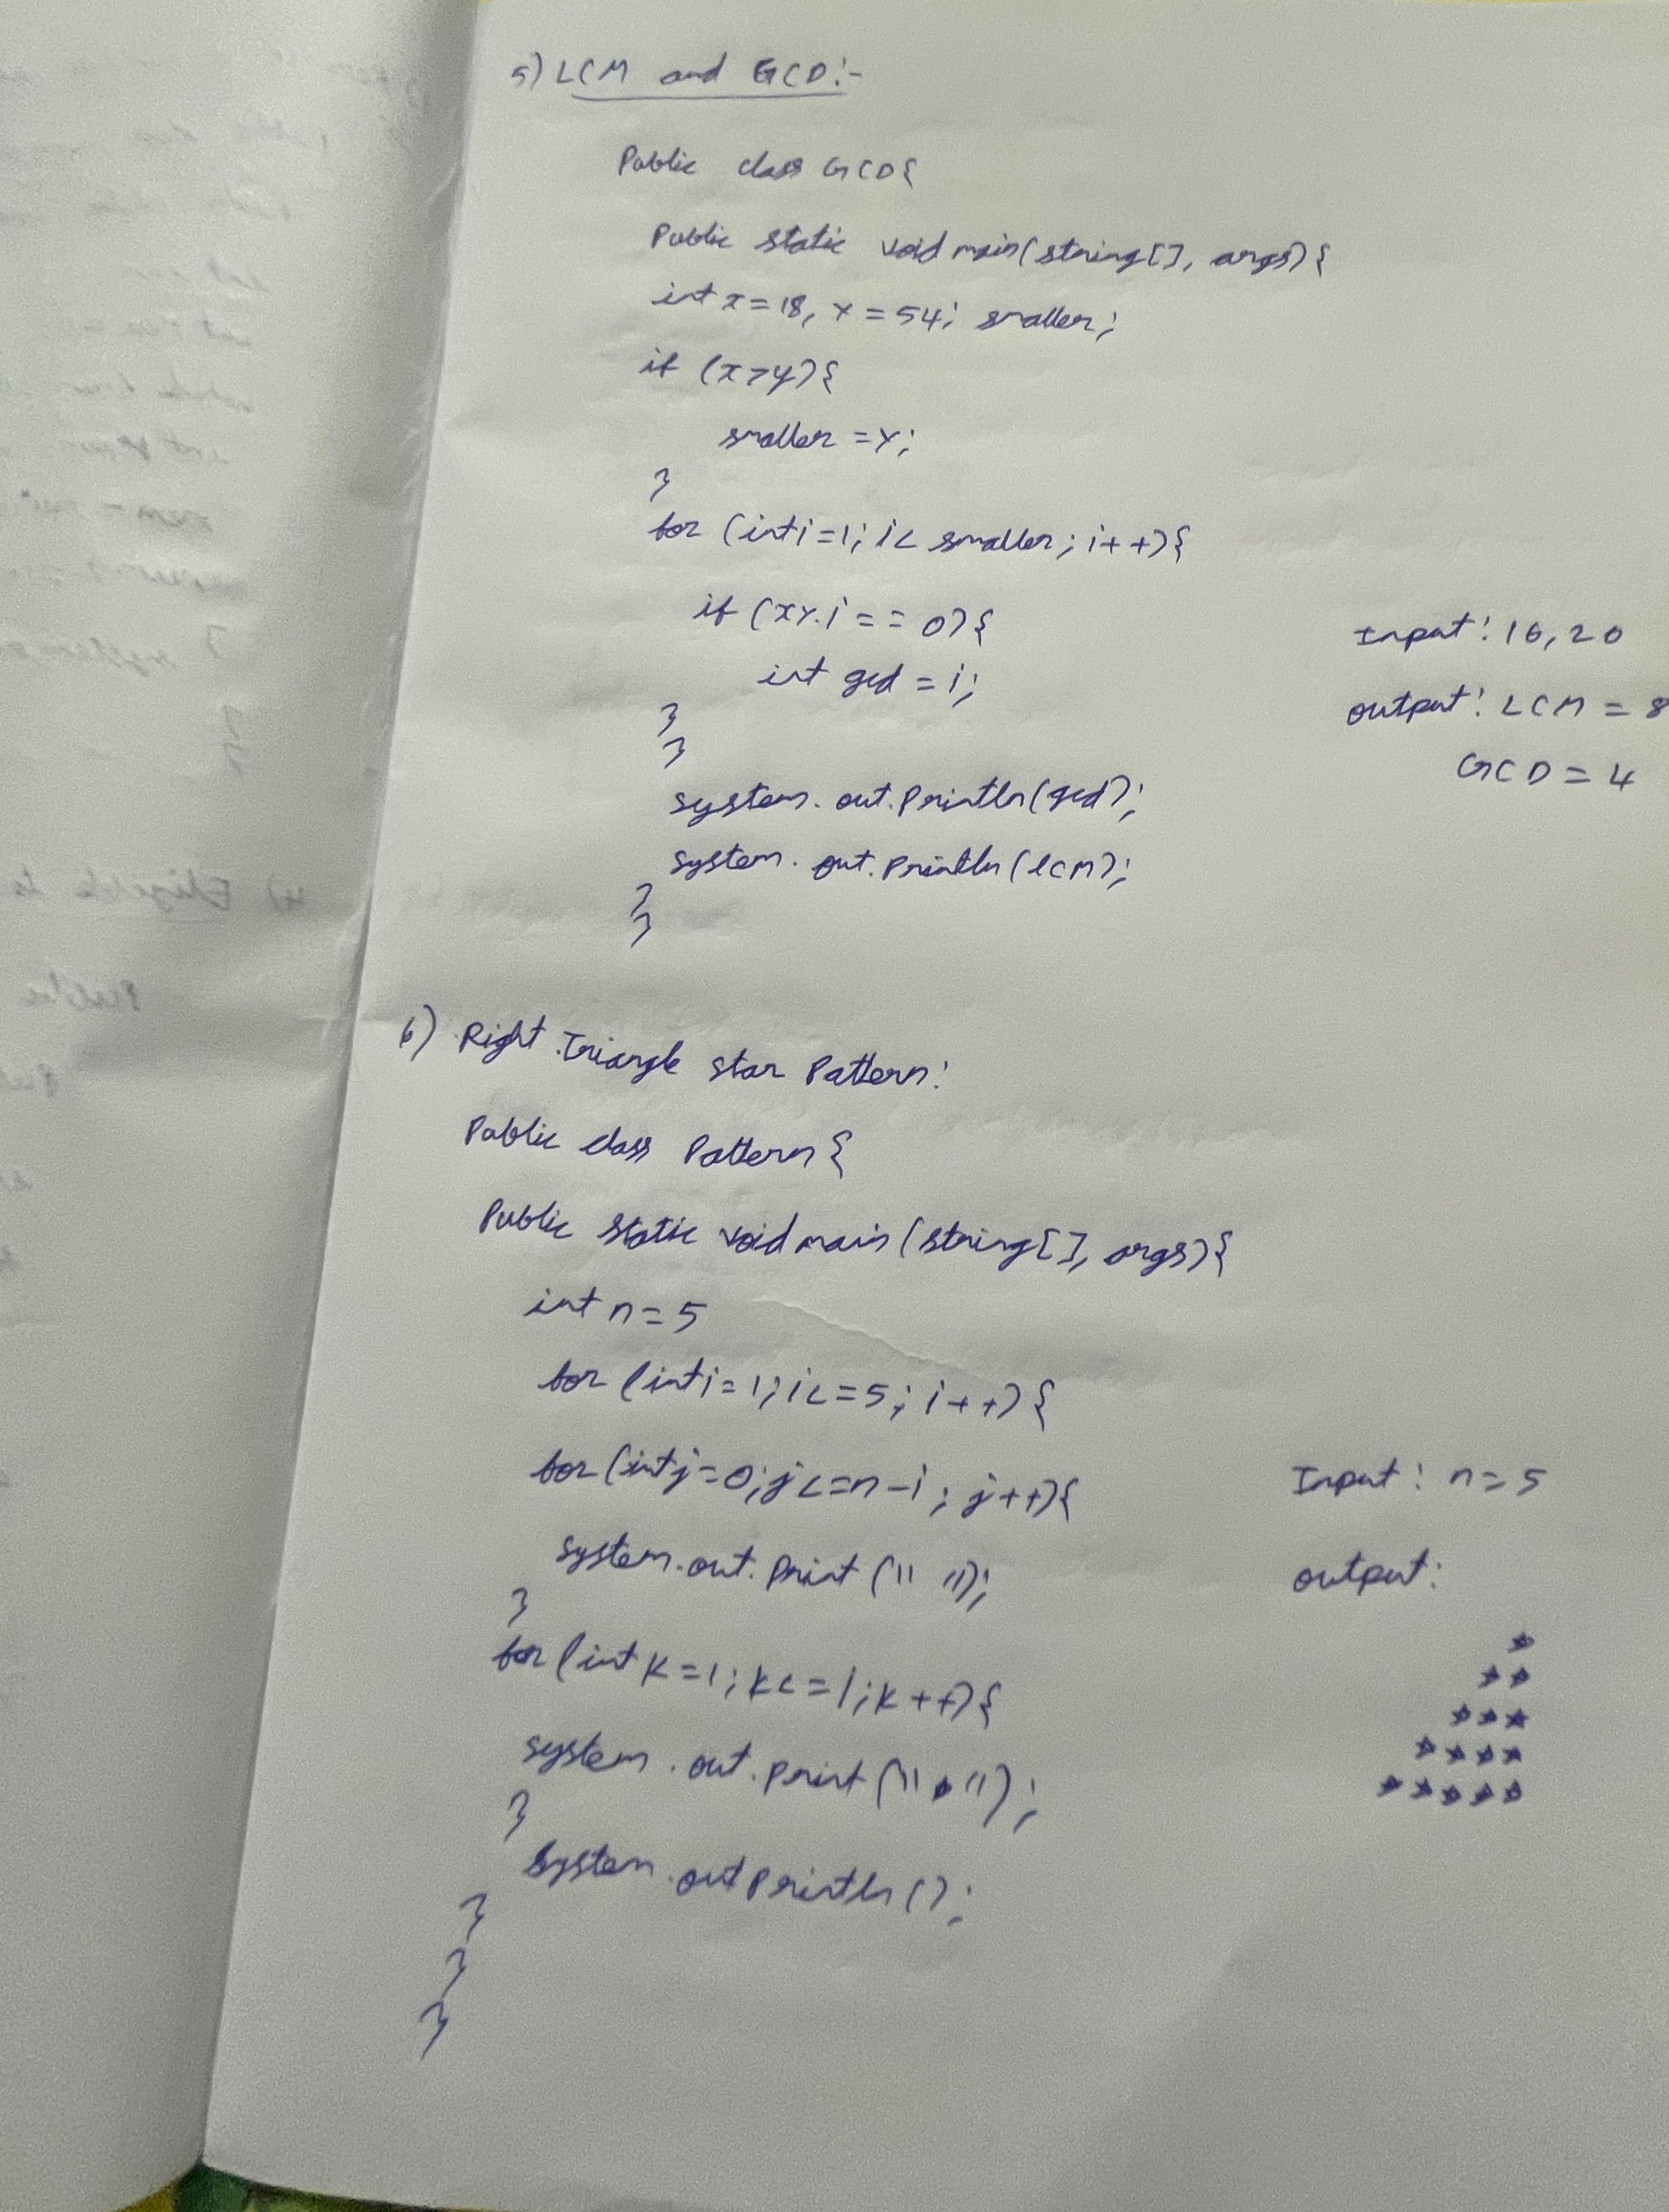 5) LCM and GCD:-
Public class GCD{
Public static void main(string[], args){
int x=18, Y=54; smaller;
if (x>y){
smaller=Y;
}
for (int i=1; i< smaller; i++){
if (x%i==0){
int gcd=i;
}
}
system.out.println(gcd);
system.out.println(lCM);
}
}
Input: 16,20
output: LCM=8
GCD=4
6) Right Triangle star Pattern:
Public class Pattern{
Public static void main(string[], args){
int n=5
for (int i=1; i<=5; i++){
for (int j=0; j<=n-i; j++){
system.out.print(" ");
}
for (int K=1; K<=1; K++){
system.out.print("*");
}
system.out println();
}
}
}
Input: n=5
output:
*
**
***
****
*****
4) Eligible to
Public